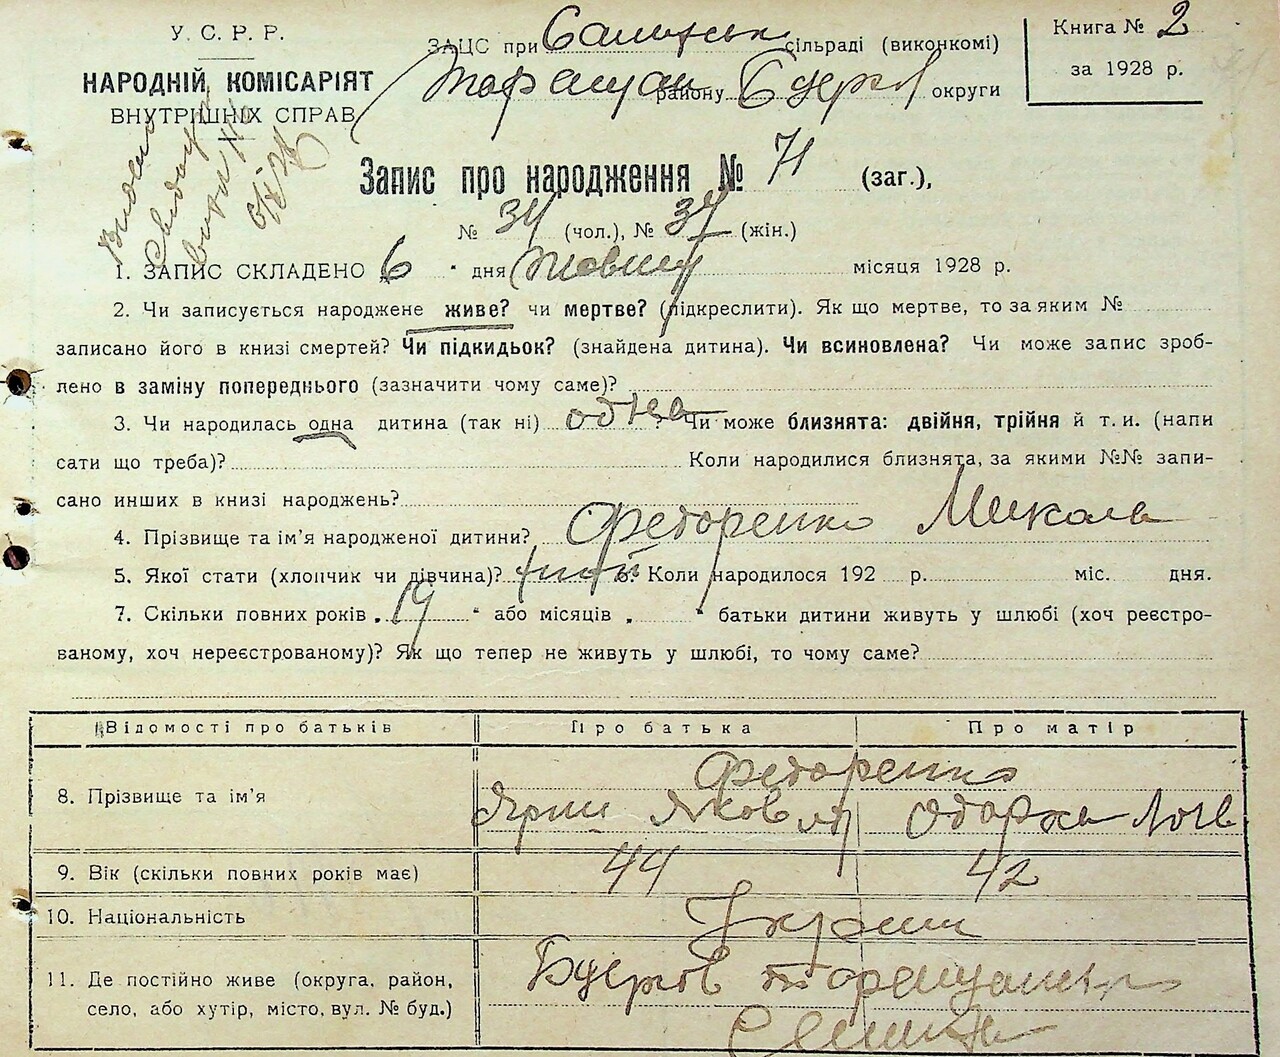 У. С. Р. Р.
НАРОДНІЙ КОМІСАРІЯТ
ВНУТРІШНІХ СПРАВ
ЗАЦС при сільраді (виконкомі)
району округи
Книга № 2
за 1928 р.
Запис про народження № 71 (заг.),
№ 34 (чол.), № 37 (жін.)
1. ЗАПИС СКЛАДЕНО 6 " дня Жовтня місяця 1928 р.
2. Чи записується народжене живе? чи мертве? (підкреслити). Як що мертве, то за яким №
записано його в книзі смертей? Чи підкидьок? (знайдена дитина). Чи всиновлена? Чи може запис зроб-
лено в заміну попереднього (зазначити чому саме)?
3. Чи народилась одна дитина (так ні) одна ? Чи може близнята: двійня, трійня й т. и. (напи
сати що треба)? Коли народилися близнята, за якими №№ запи-
сано инших в книзі народжень?
4. Прізвище та ім'я народженої дитини? Федоренко Микола
5. Якої стати (хлопчик чи дівчина)? 6. Коли народилося 192 р. міс. дня.
7. Скільки повних років „ 19 " або місяців „ " батьки дитини живуть у шлюбі (хоч реєстро-
ваному, хоч нереєстрованому)? Як що тепер не живуть у шлюбі, то чому саме?
Відомості про батьків Про батька Про матір
Федоренко
8. Прізвище та ім'я Яковл Одарка Логв
9. Вік (скільки повних років має) 44 42
10. Національність Україн
11. Де постійно живе (округа, район,
село, або хутір, місто, вул. № буд.)